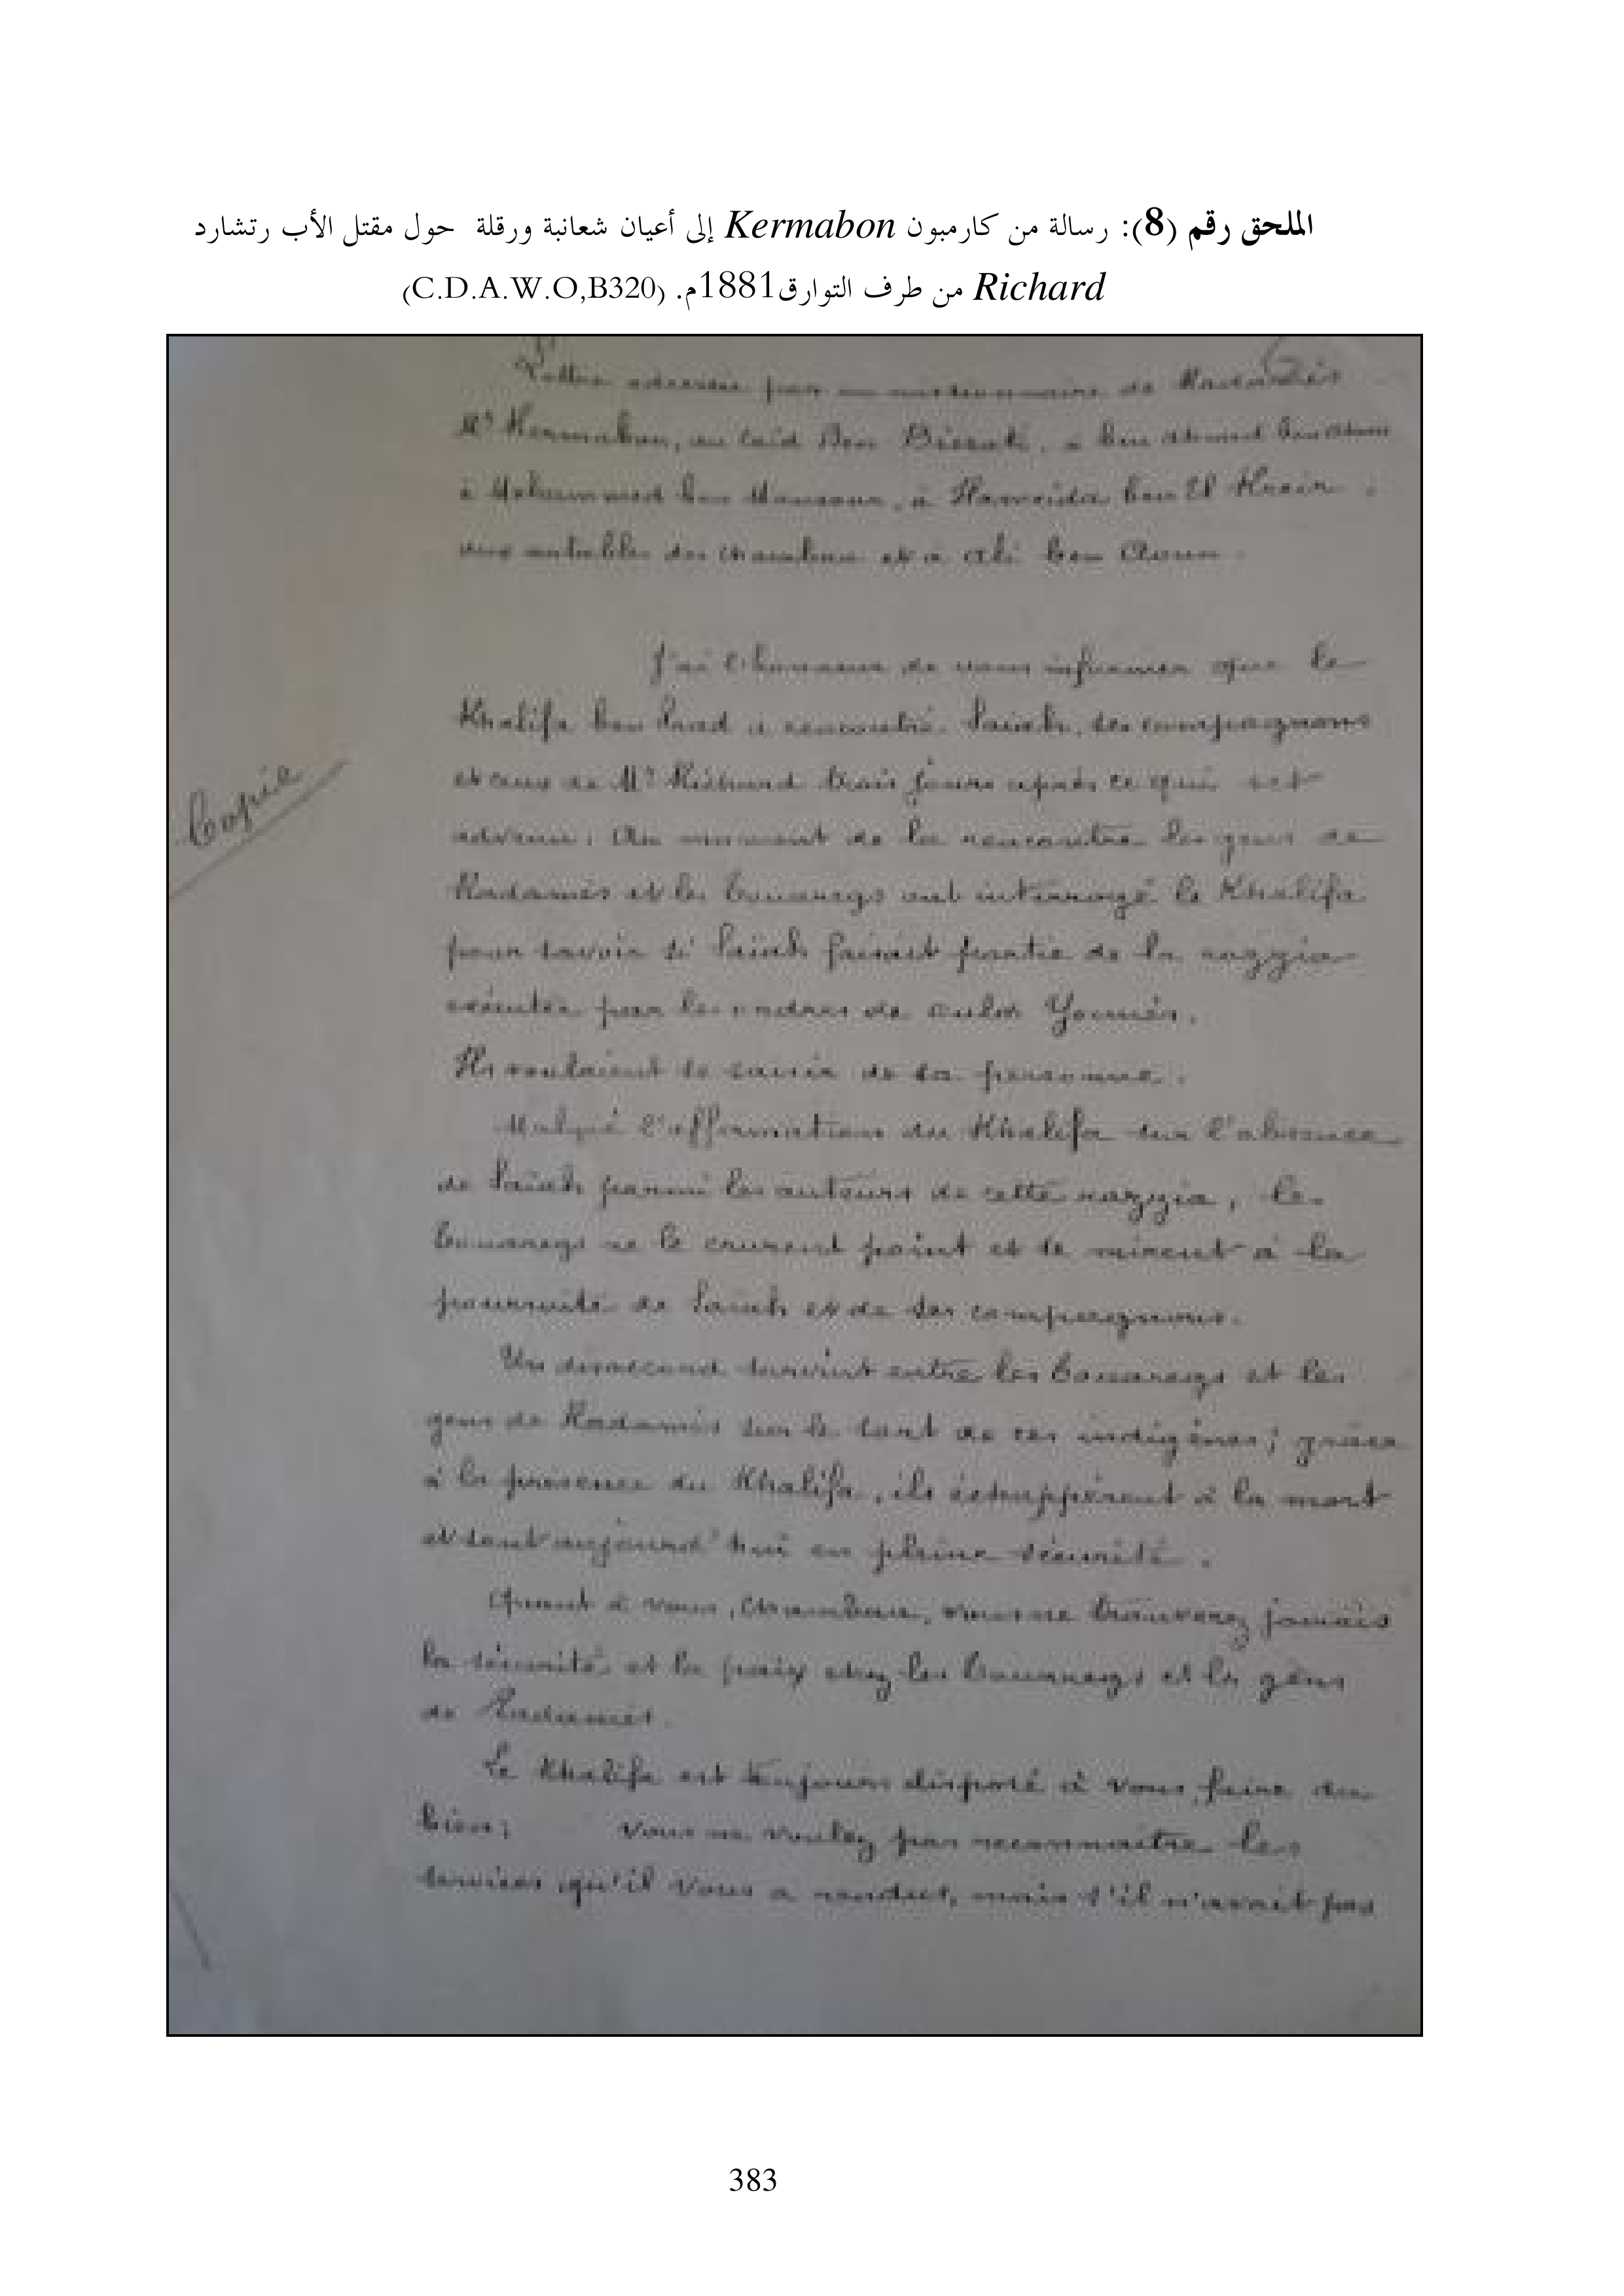 الملحق رقم (8): رسالة من كارمبون Kermabon إلى أعيان شعانبة ورقلة حول مقتل الأب رتشارد
Richard من طرف التوارق1881م. (C.D.A.W.O,B320)
Lettre adressée par un missionnaire de Radamès
Mr Kermabon, au Caïd Ben
à Mohammed ben Mansour, à Hameida ben El
aux notables des Chambaa et à Ali ben
J'ai l'honneur de vous informer que le
Khalifa ben a rencontré Saïah, ses compagnons
et ceux de Mr Richard trois jours après ce qui est
advenu. Au moment de la rencontre les gens de
Radamès et les Touaregs ont interrogé le Khalifa
pour savoir si Saïah faisait partie de la razzia
exécutée par les ordres de ould Younès.
Ils voulaient se saisir de sa personne.
Copie
Malgré l'affirmation du Khalifa sur l'absence
de Saïah parmi les auteurs de cette razzia, les
Touaregs ne le crurent point et se mirent à la
poursuite de Saïah et de ses compagnons.
Un désaccord survint entre les Touaregs et les
gens de Radamès sur le sort de ces indigènes; grâce
à la présence du Khalifa, ils échappèrent à la mort
et sont aujourd'hui en pleine sécurité.
Quant à vous, Chambaa, vous ne trouverez jamais
la sécurité et la paix chez les Touaregs et les gens
de Radamès.
Le Khalifa est toujours disposé à vous faire du
bien; vous ne voulez pas reconnaître les
services qu'il vous a rendus, mais s'il n'avait pas
383